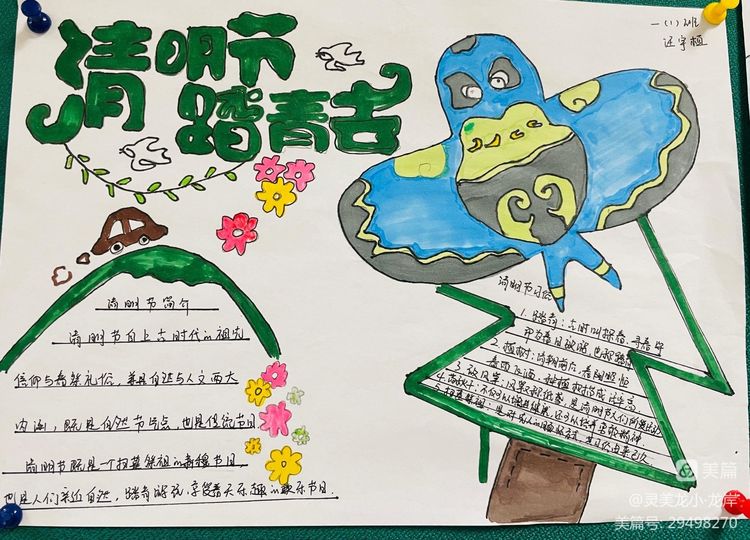 清明节
踏青去
一(1)班
清明节简介
清明节自上古时代的祖先
信仰与春祭礼俗,兼具自然与人文两大
内涵,既是自然节气点,也是传统节日
清明节既是一个扫墓祭祖的肃穆节日
也是人们亲近自然,踏青游玩,享受春天乐趣的欢乐节日.
清明节习俗
1、踏青:古时叫探春、寻春等
2、植树:清明前后,春阳照临
春雨飞洒,种植树苗成活率高
美篇
@灵美龙小·龙岸
美篇号: 29498270